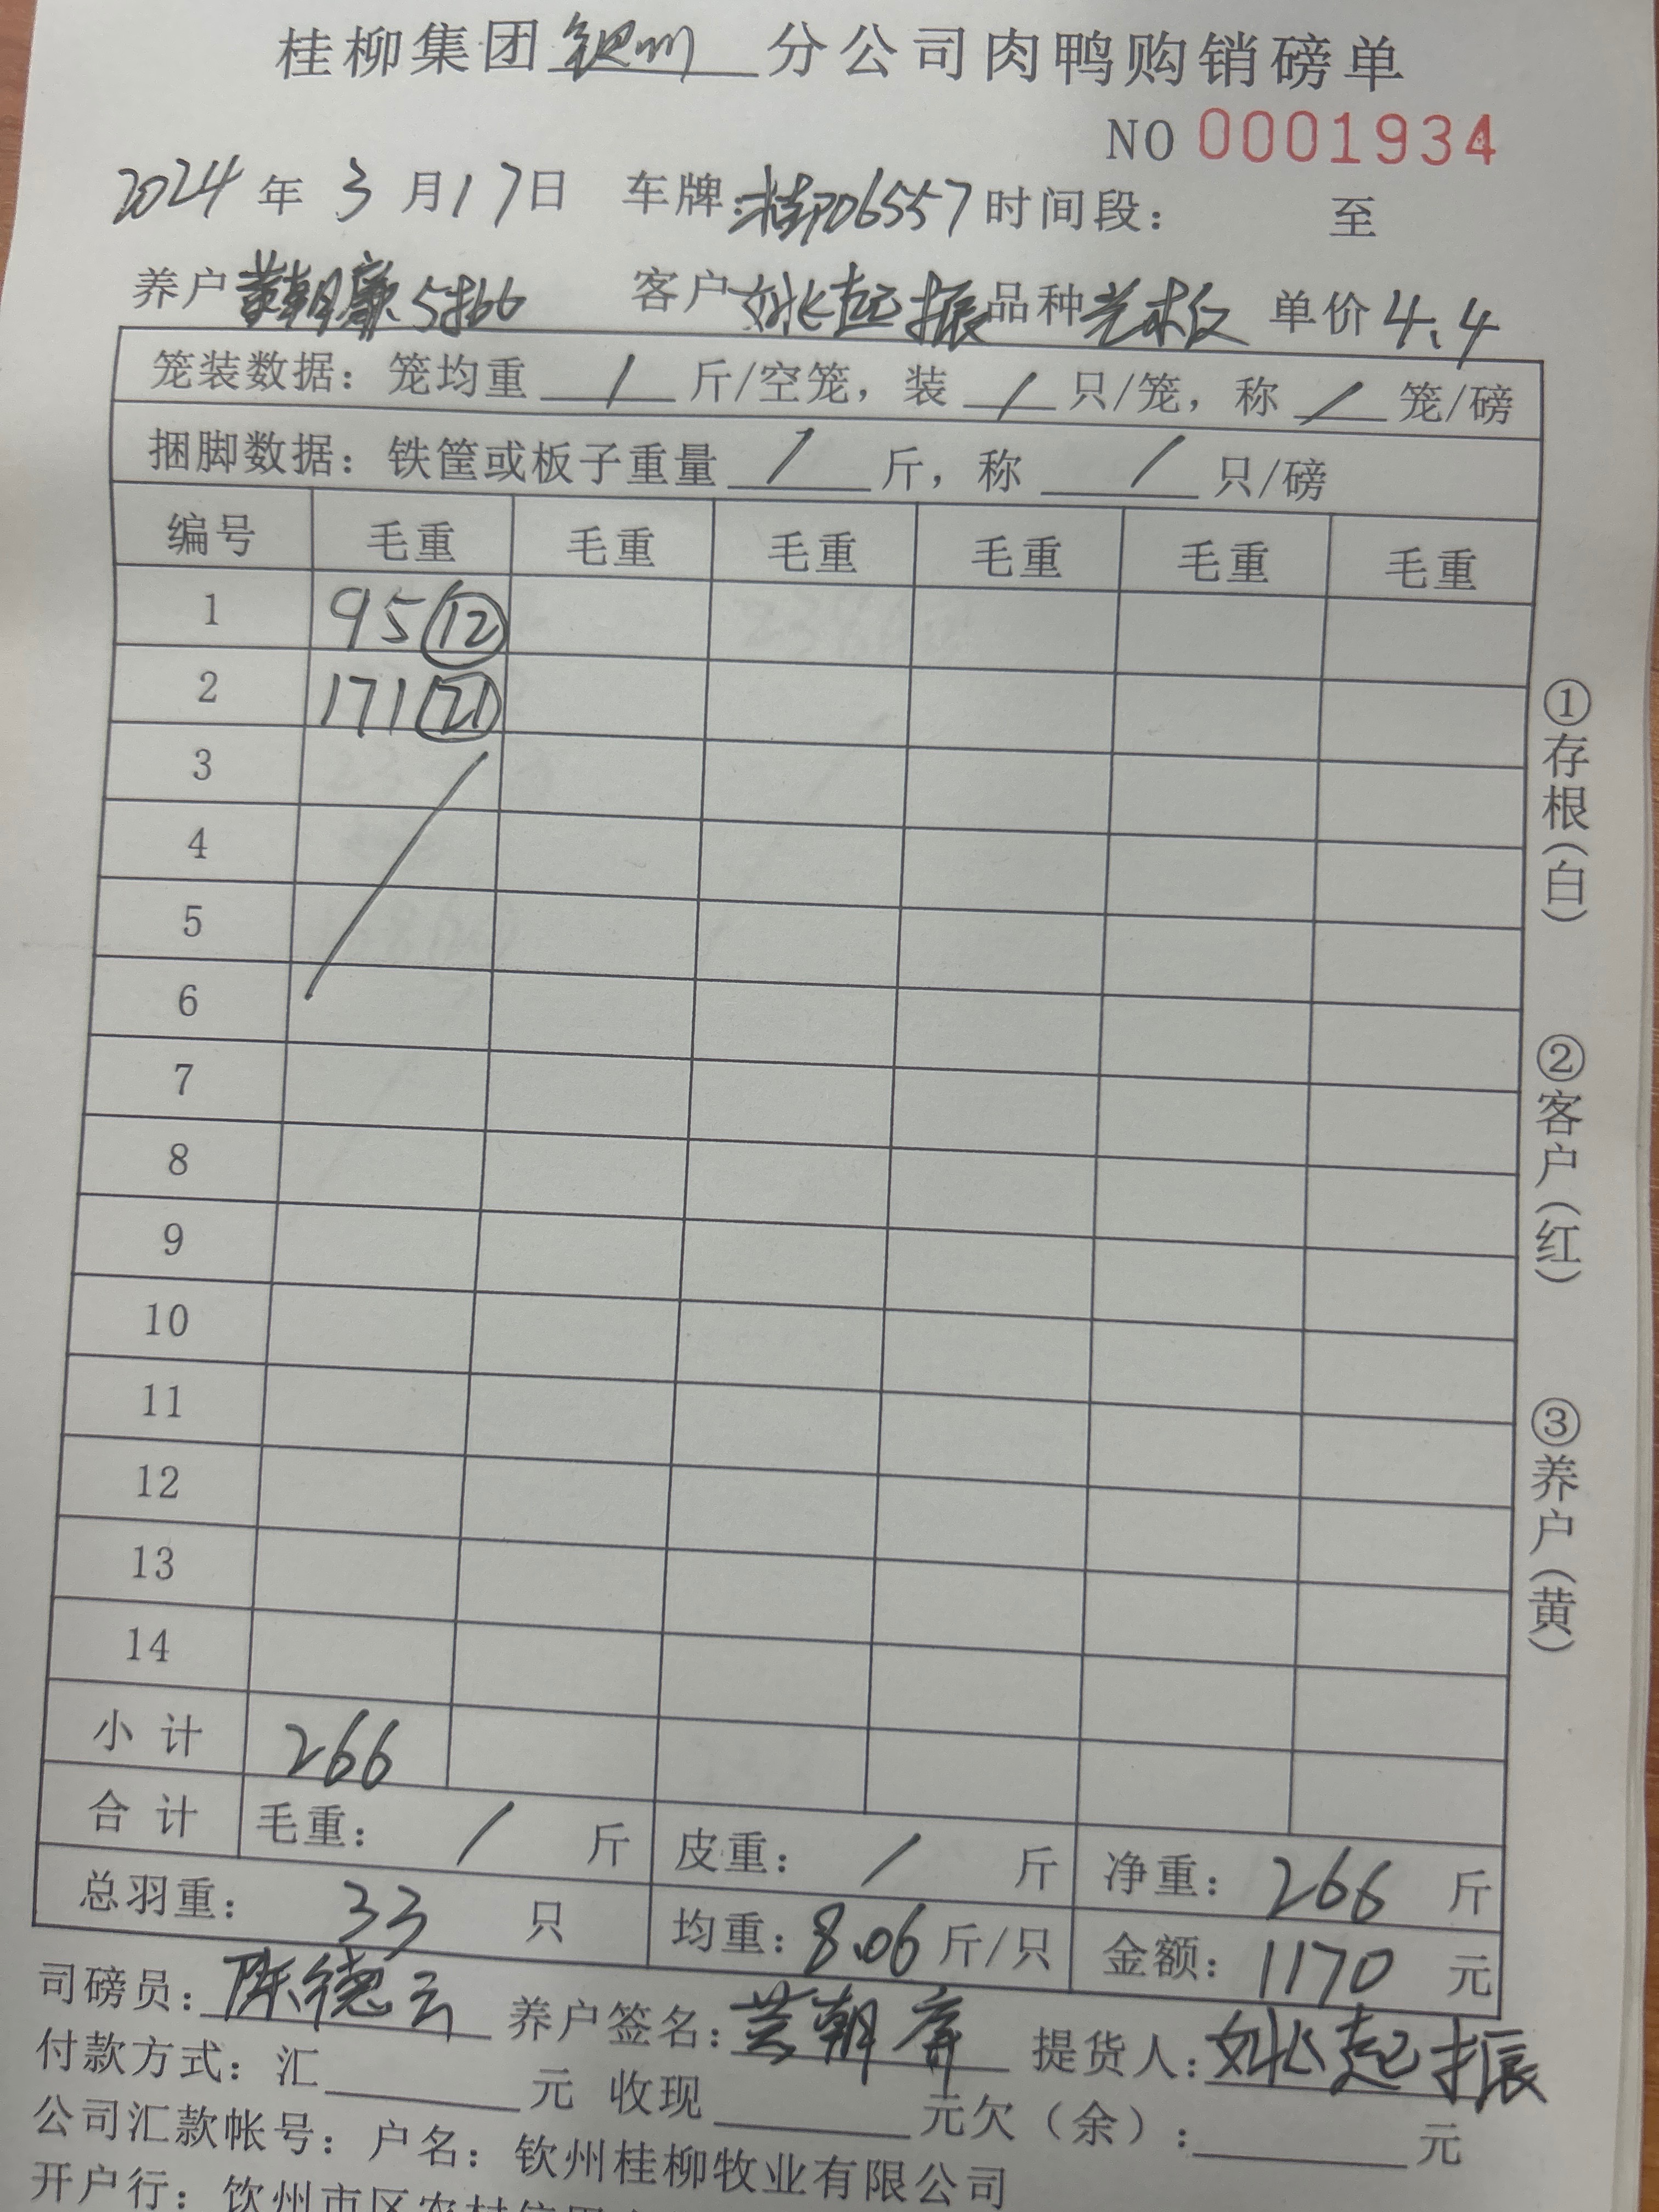 桂柳集团钦州分公司肉鸭购销磅单
NO 0001934
2024年3月17日 车牌:桂P06557 时间段: 至
养户 黄朝 5批 客户 姚起振 品种 单价 4.4
笼装数据:笼均重 / 斤/空笼,装 / 只/笼,称 / 笼/磅
捆脚数据:铁筐或板子重量 / 斤,称 / 只/磅
编号 毛重 毛重 毛重 毛重 毛重 毛重
1 95 ⑫
2 171 ㉑
3
4
5
6
7
8
9
10
11
12
13
14
小计 266
合计 毛重: / 斤 皮重: / 斤 净重:266 斤
总羽重: 33 只 均重:8.06 斤/只 金额:1170 元
司磅员:陈德云 养户签名:黄朝 提货人:姚起振
付款方式:汇 元 收现 元欠(余): 元
公司汇款帐号:户名:钦州桂柳牧业有限公司
开户行:钦州市区农村信用
①存根(白)
②客户(红)
③养户(黄)